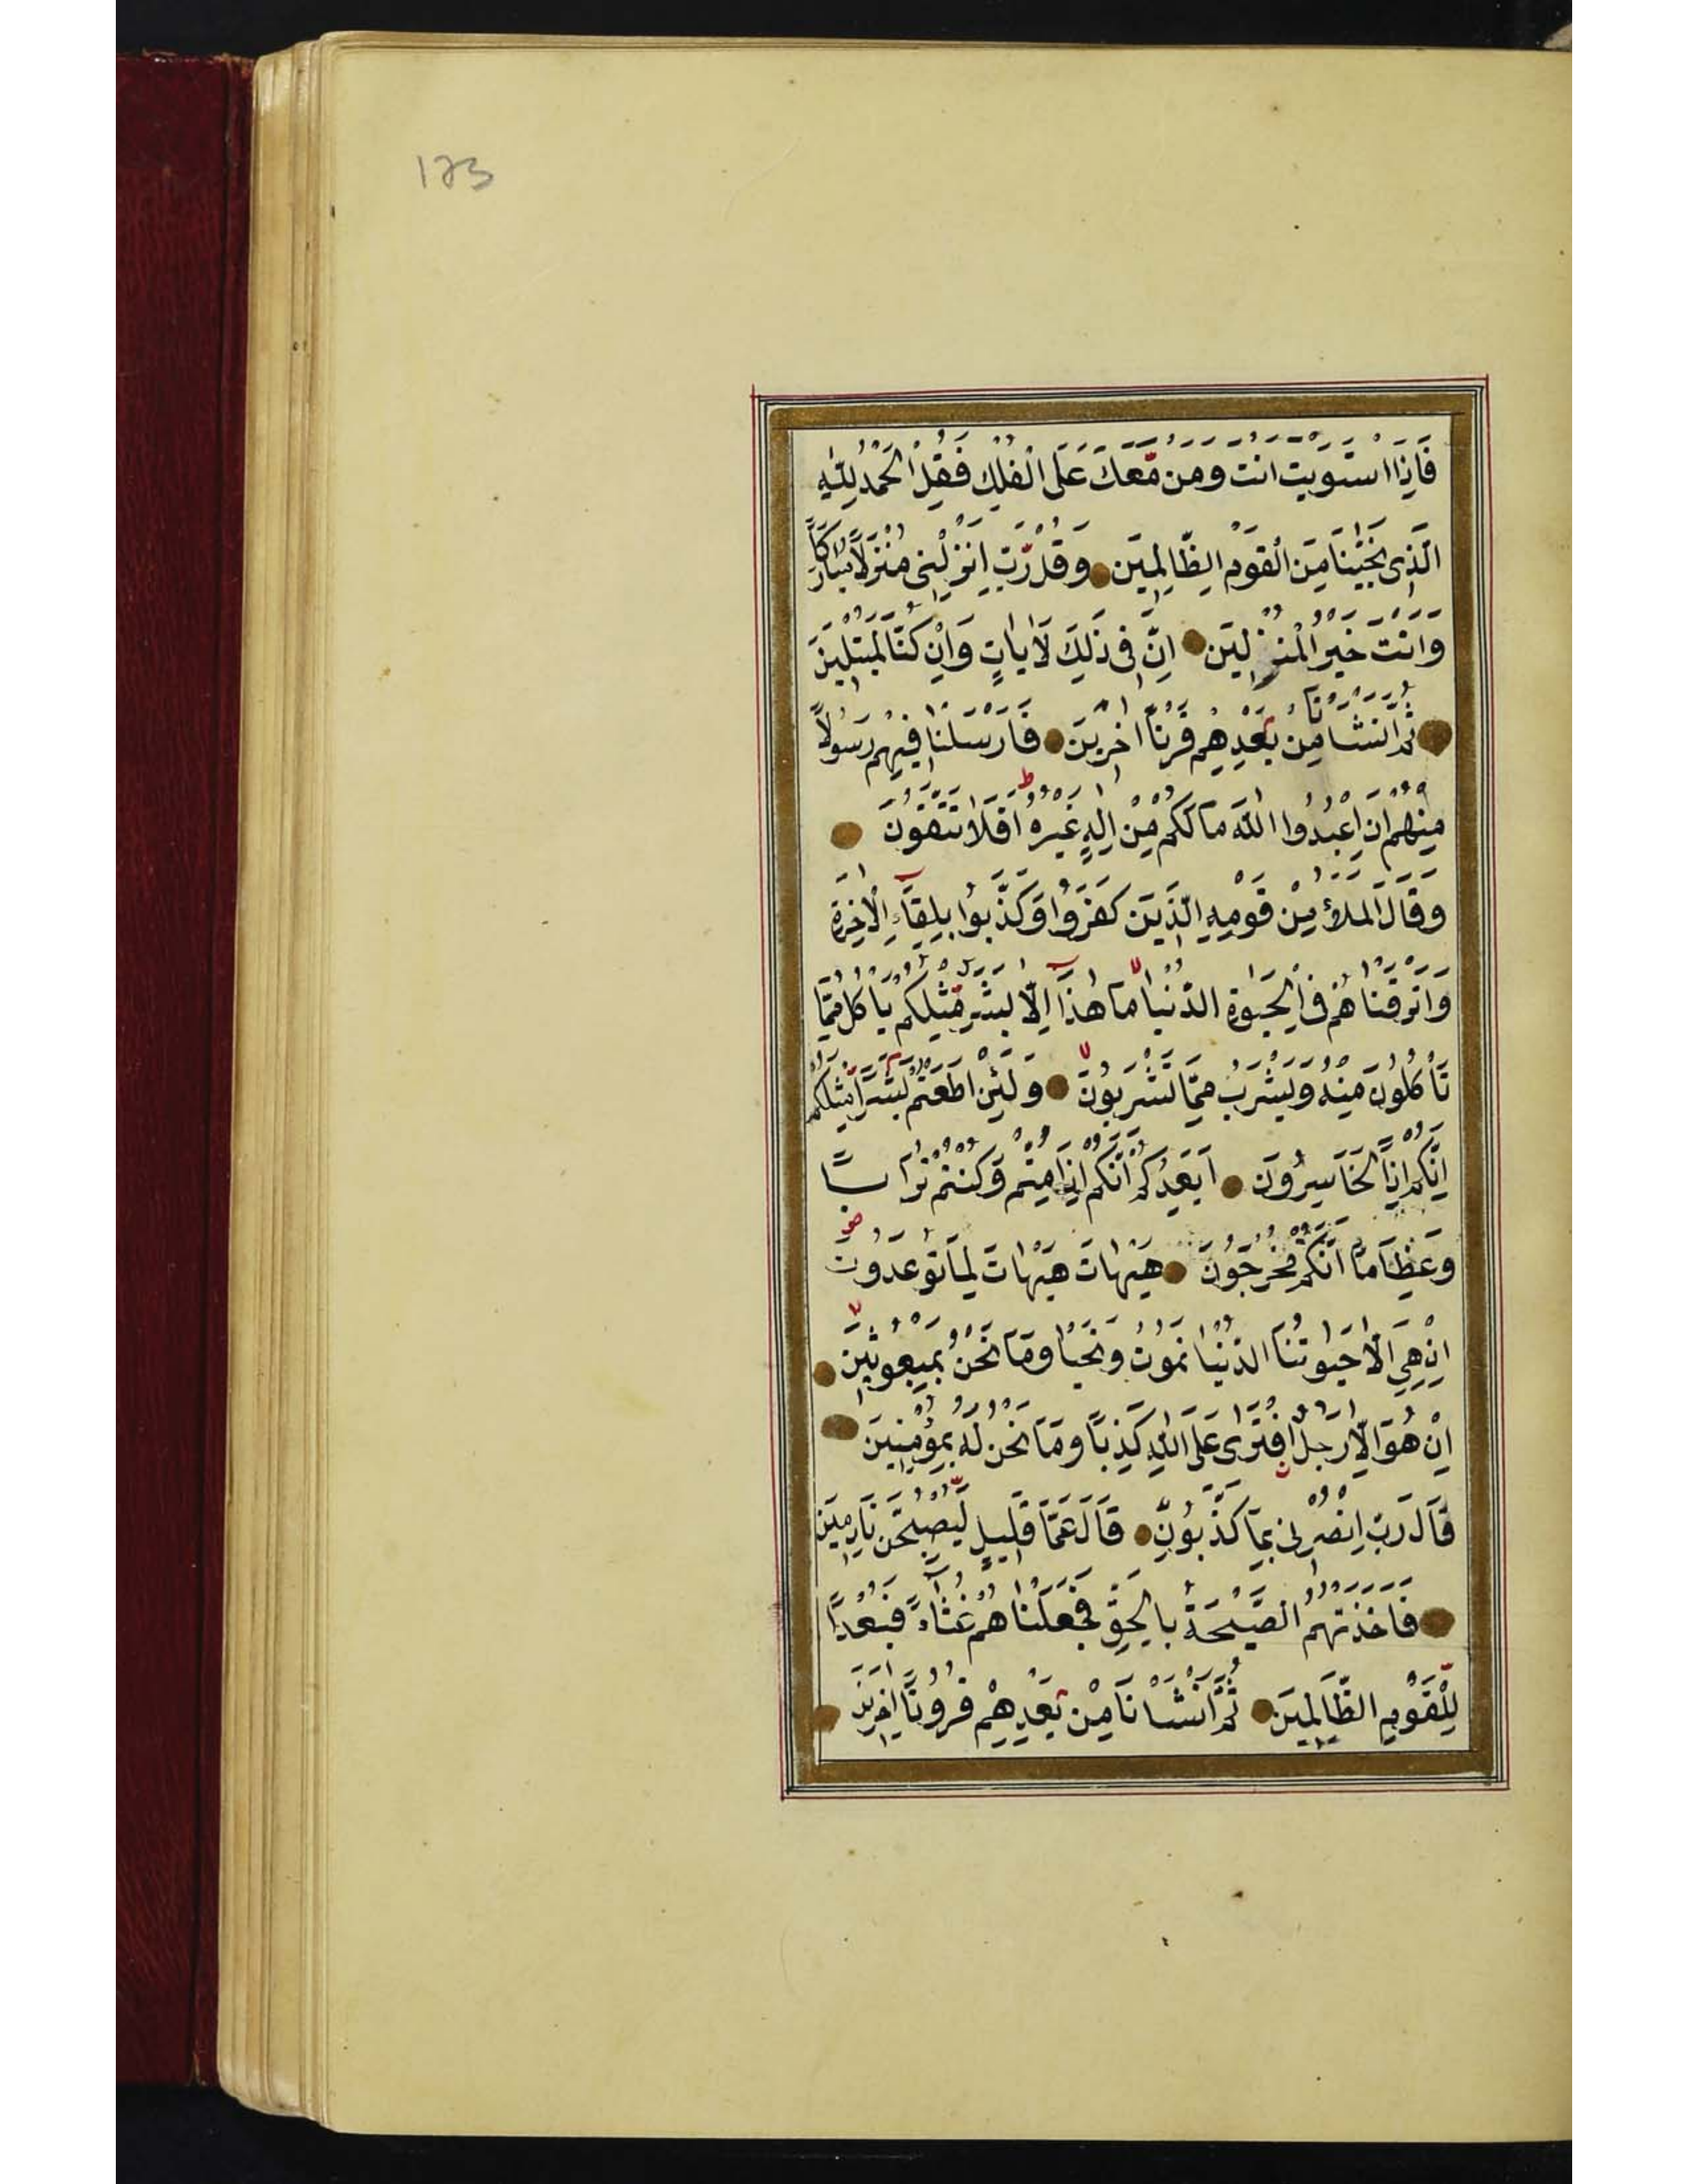 123
فَاِذَا اسْتَوَيْتَ اَنْتَ وَمَنْ مَّعَكَ عَلَى الْفُلْكِ فَقُلِ الْحَمْدُ لِلّٰهِ
الَّذِى نَجّٰينَا مِنَ الْقَوْمِ الظَّالِمِيَن وَقُلْ رَّبِّ اَنْزِلْنِى مُنْزَلًا مُبَارَكًا
وَاَنْتَ خَيْرُ الْمُنْزِلِيَن اِنَّ فِى ذٰلِكَ لَاٰيَاتٍ وَاِنْ كُنَّا لَمُبْتَلِيَن
ثُمَّ اَنْشَاْنَا مِنْ بَعْدِهِمْ قَرْنًا اٰخَرِيَن فَاَرْسَلْنَا فِيهِمْ رَسُولًا
مِنْهُمْ اَنِ اعْبُدُوا اللّٰهَ مَا لَكُمْ مِنْ اِلٰهٍ غَيْرُهُ ط اَفَلَا تَتَّقُونَ
وَقَالَ الْمَلَأُ مِنْ قَوْمِهِ الَّذِيَن كَفَرُوا وَكَذَّبُوا بِلِقَآءِ الْاٰخِرَةِ
وَاَتْرَفْنَاهُمْ فِى الْحَيٰوةِ الدُّنْيَا لا مَا هٰذَآ اِلَّا بَشَرٌ مِّثْلُكُمْ يَاْكُلُ مِمَّا
تَاْكُلُونَ مِنْهُ وَيَشْرَبُ مِمَّا تَشْرَبُونَ لا وَلَئِنْ اَطَعْتُمْ بَشَرًا مِّثْلَكُمْ
اِنَّكُمْ اِذًا لَخَاسِرُونَ اَيَعِدُكُمْ اَنَّكُمْ اِذَا مِتُّمْ وَكُنْتُمْ تُرَابًا
وَعِظَامًا اَنَّكُمْ مُخْرَجُونَ هَيْهَاتَ هَيْهَاتَ لِمَا تُوعَدُونَ
اِنْ هِىَ اِلَّا حَيٰوتُنَا الدُّنْيَا نَمُوتُ وَنَحْيَا وَمَا نَحْنُ بِمَبْعُوثِيَن لا
اِنْ هُوَ اِلَّا رَجُلٌ افْتَرٰى عَلَى اللّٰهِ كَذِبًا وَمَا نَحْنُ لَهُ بِمُؤْمِنِيَن
قَالَ رَبِّ انْصُرْنِى بِمَا كَذَّبُونِ قَالَ عَمَّا قَلِيلٍ لَيُصْبِحُنَّ نَادِمِيَن
فَاَخَذَتْهُمُ الصَّيْحَةُ بِالْحَقِّ فَجَعَلْنَاهُمْ غُثَآءً فَبُعْدًا
لِلْقَوْمِ الظَّالِمِيَن ثُمَّ اَنْشَاْنَا مِنْ بَعْدِهِمْ قُرُونًا اٰخَرِيَن